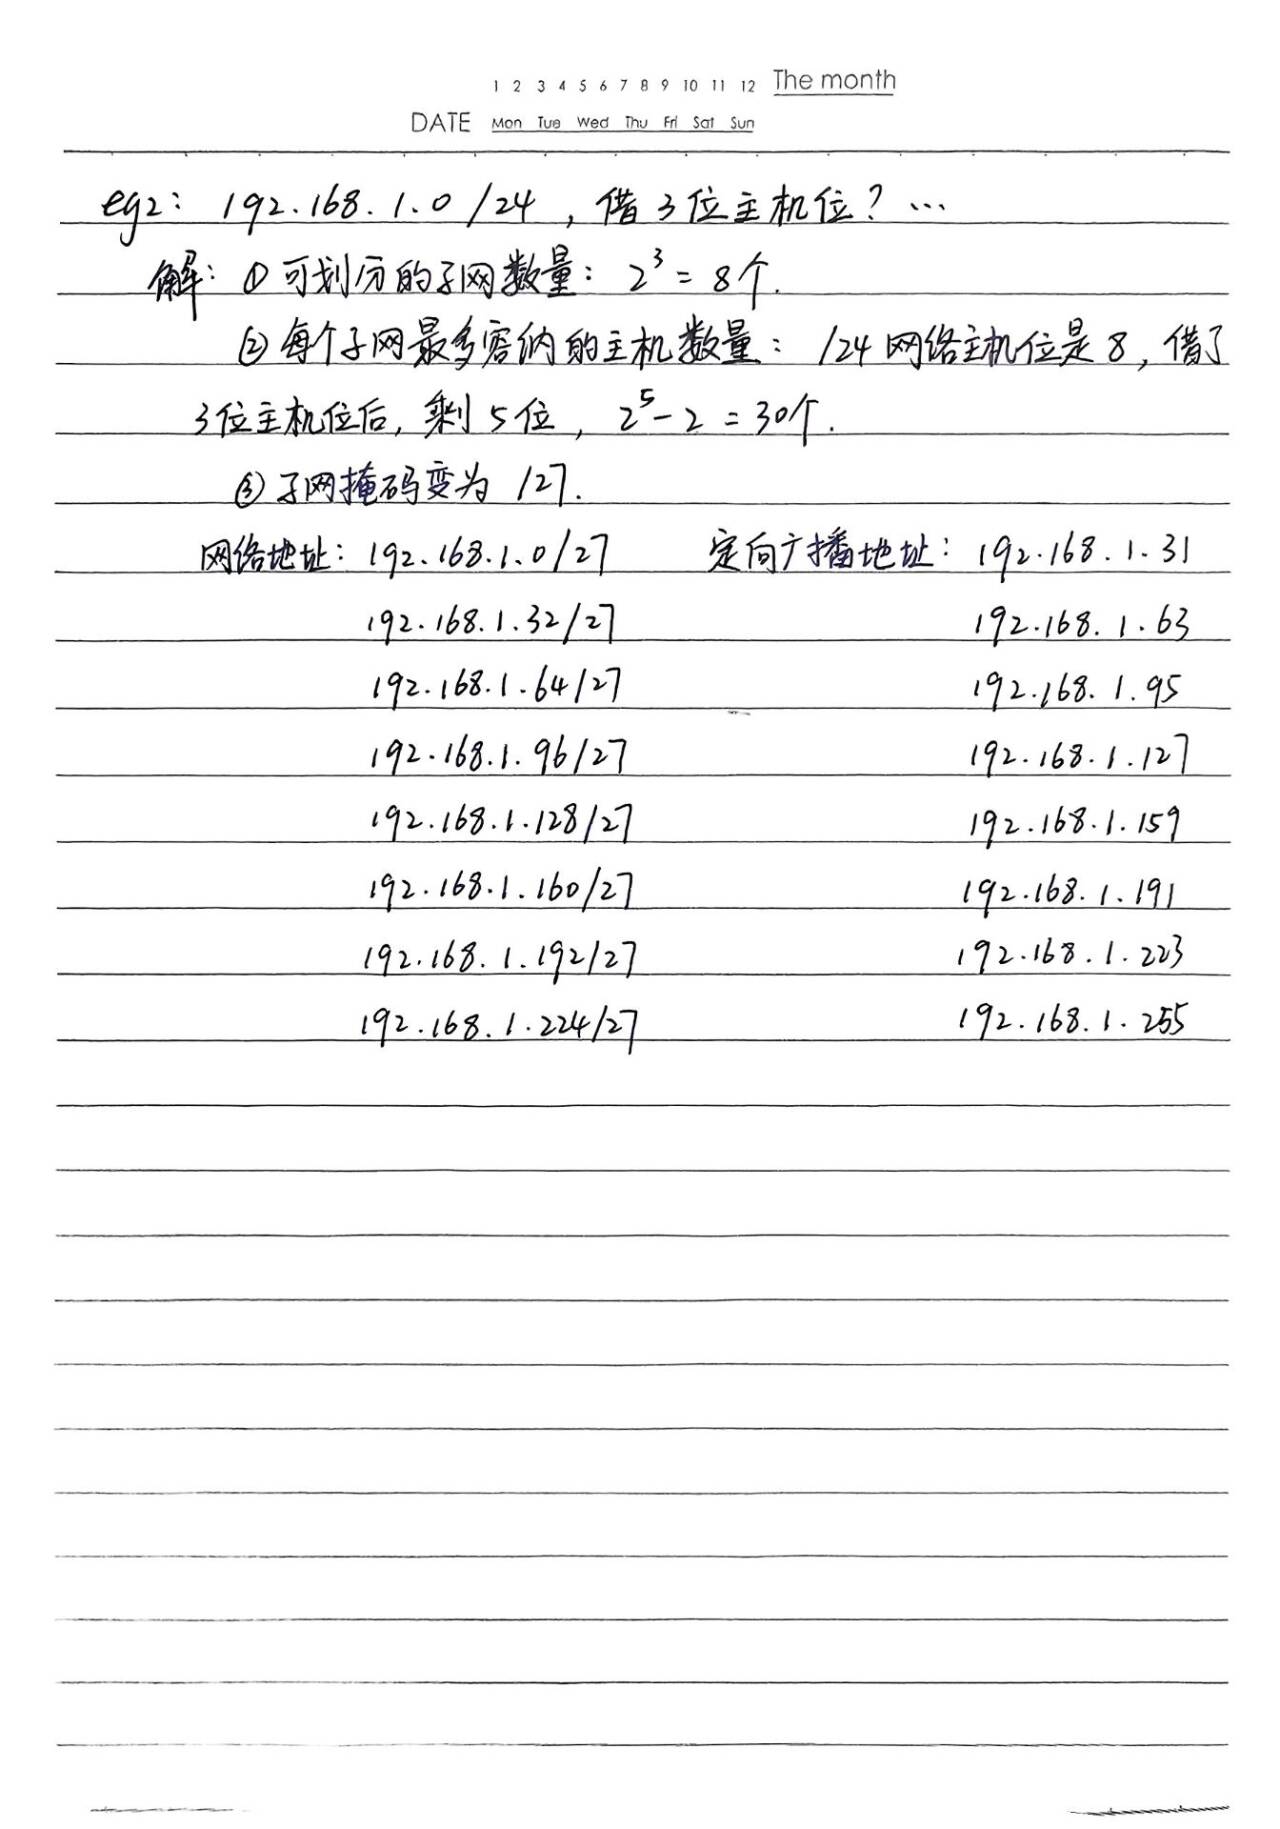 1 2 3 4 5 6 7 8 9 10 11 12 The month
DATE Mon Tue Wed Thu Fri Sat Sun
eg2: 192.168.1.0 /24 , 借3位主机位? …
解: ① 可划分的子网数量: 2³ = 8个.
② 每个子网最多容纳的主机数量: /24 网络主机位是 8, 借了
3位主机位后, 剩5位, 2⁵-2 = 30个.
③ 子网掩码变为 /27.
网络地址: 192.168.1.0/27 定向广播地址: 192.168.1.31
192.168.1.32/27 192.168.1.63
192.168.1.64/27 192.168.1.95
192.168.1.96/27 192.168.1.127
192.168.1.128/27 192.168.1.159
192.168.1.160/27 192.168.1.191
192.168.1.192/27 192.168.1.223
192.168.1.224/27 192.168.1.255